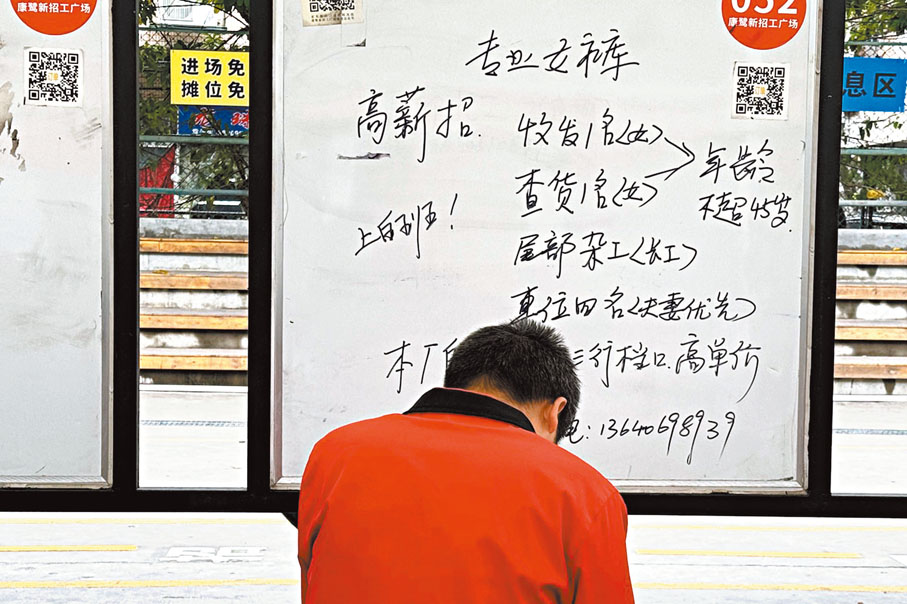 康鹭新招工广场
进场免
摊位免
052
康鹭新招工广场
息区
专业女裤
高薪招
收发1名(女)
查货1名(女)
年龄
不超45岁
上白班!
尾部杂工(长工)
车位四名(夫妻优先)
本厂
行档口.高单价
电:13640698939